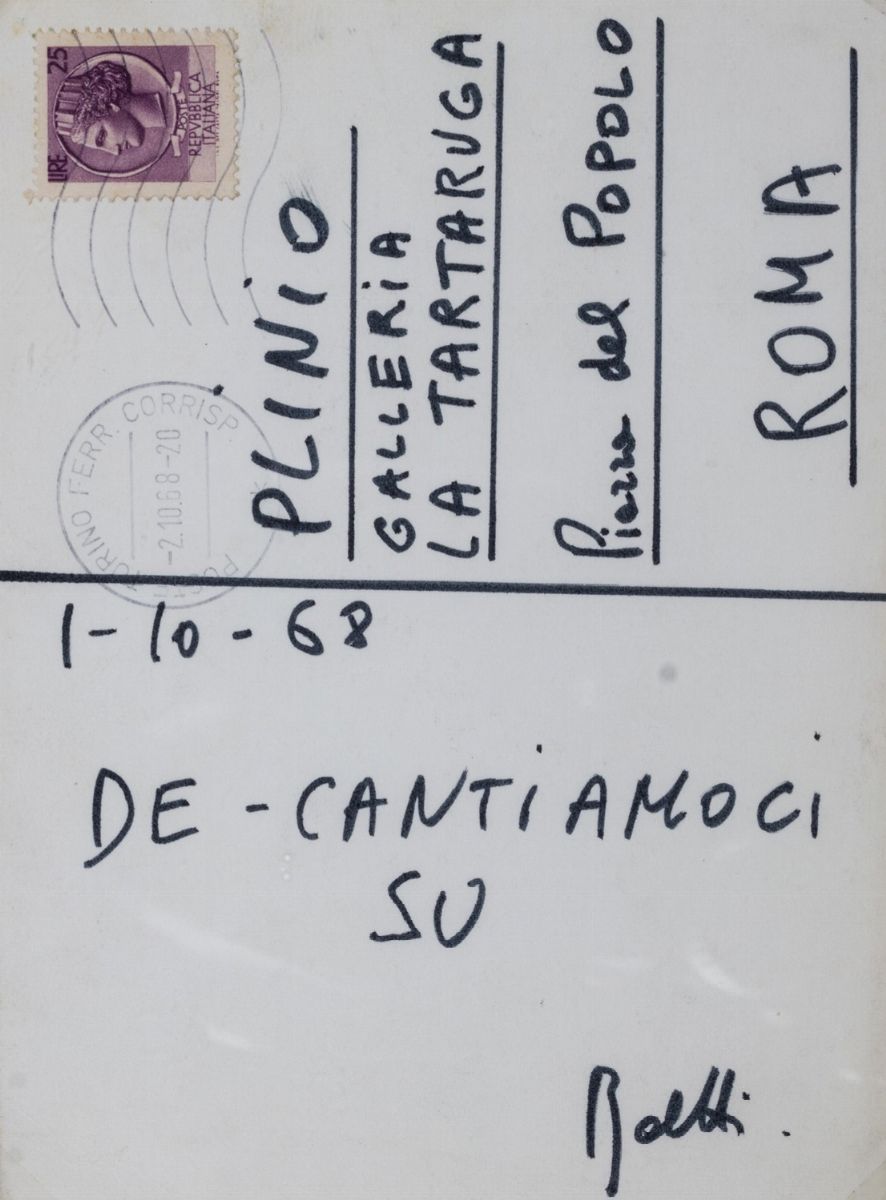 LIRE 25
POSTE
REPVBBLICA
ITALIANA
TORINO FERR. CORRISP.
-2.10.68-20
PLINIO
GALLERIA
LA TARTARUGA
Piazza del POPOLO
ROMA
1-10-68
DE-CANTIAMOCI
SU
Boetti.